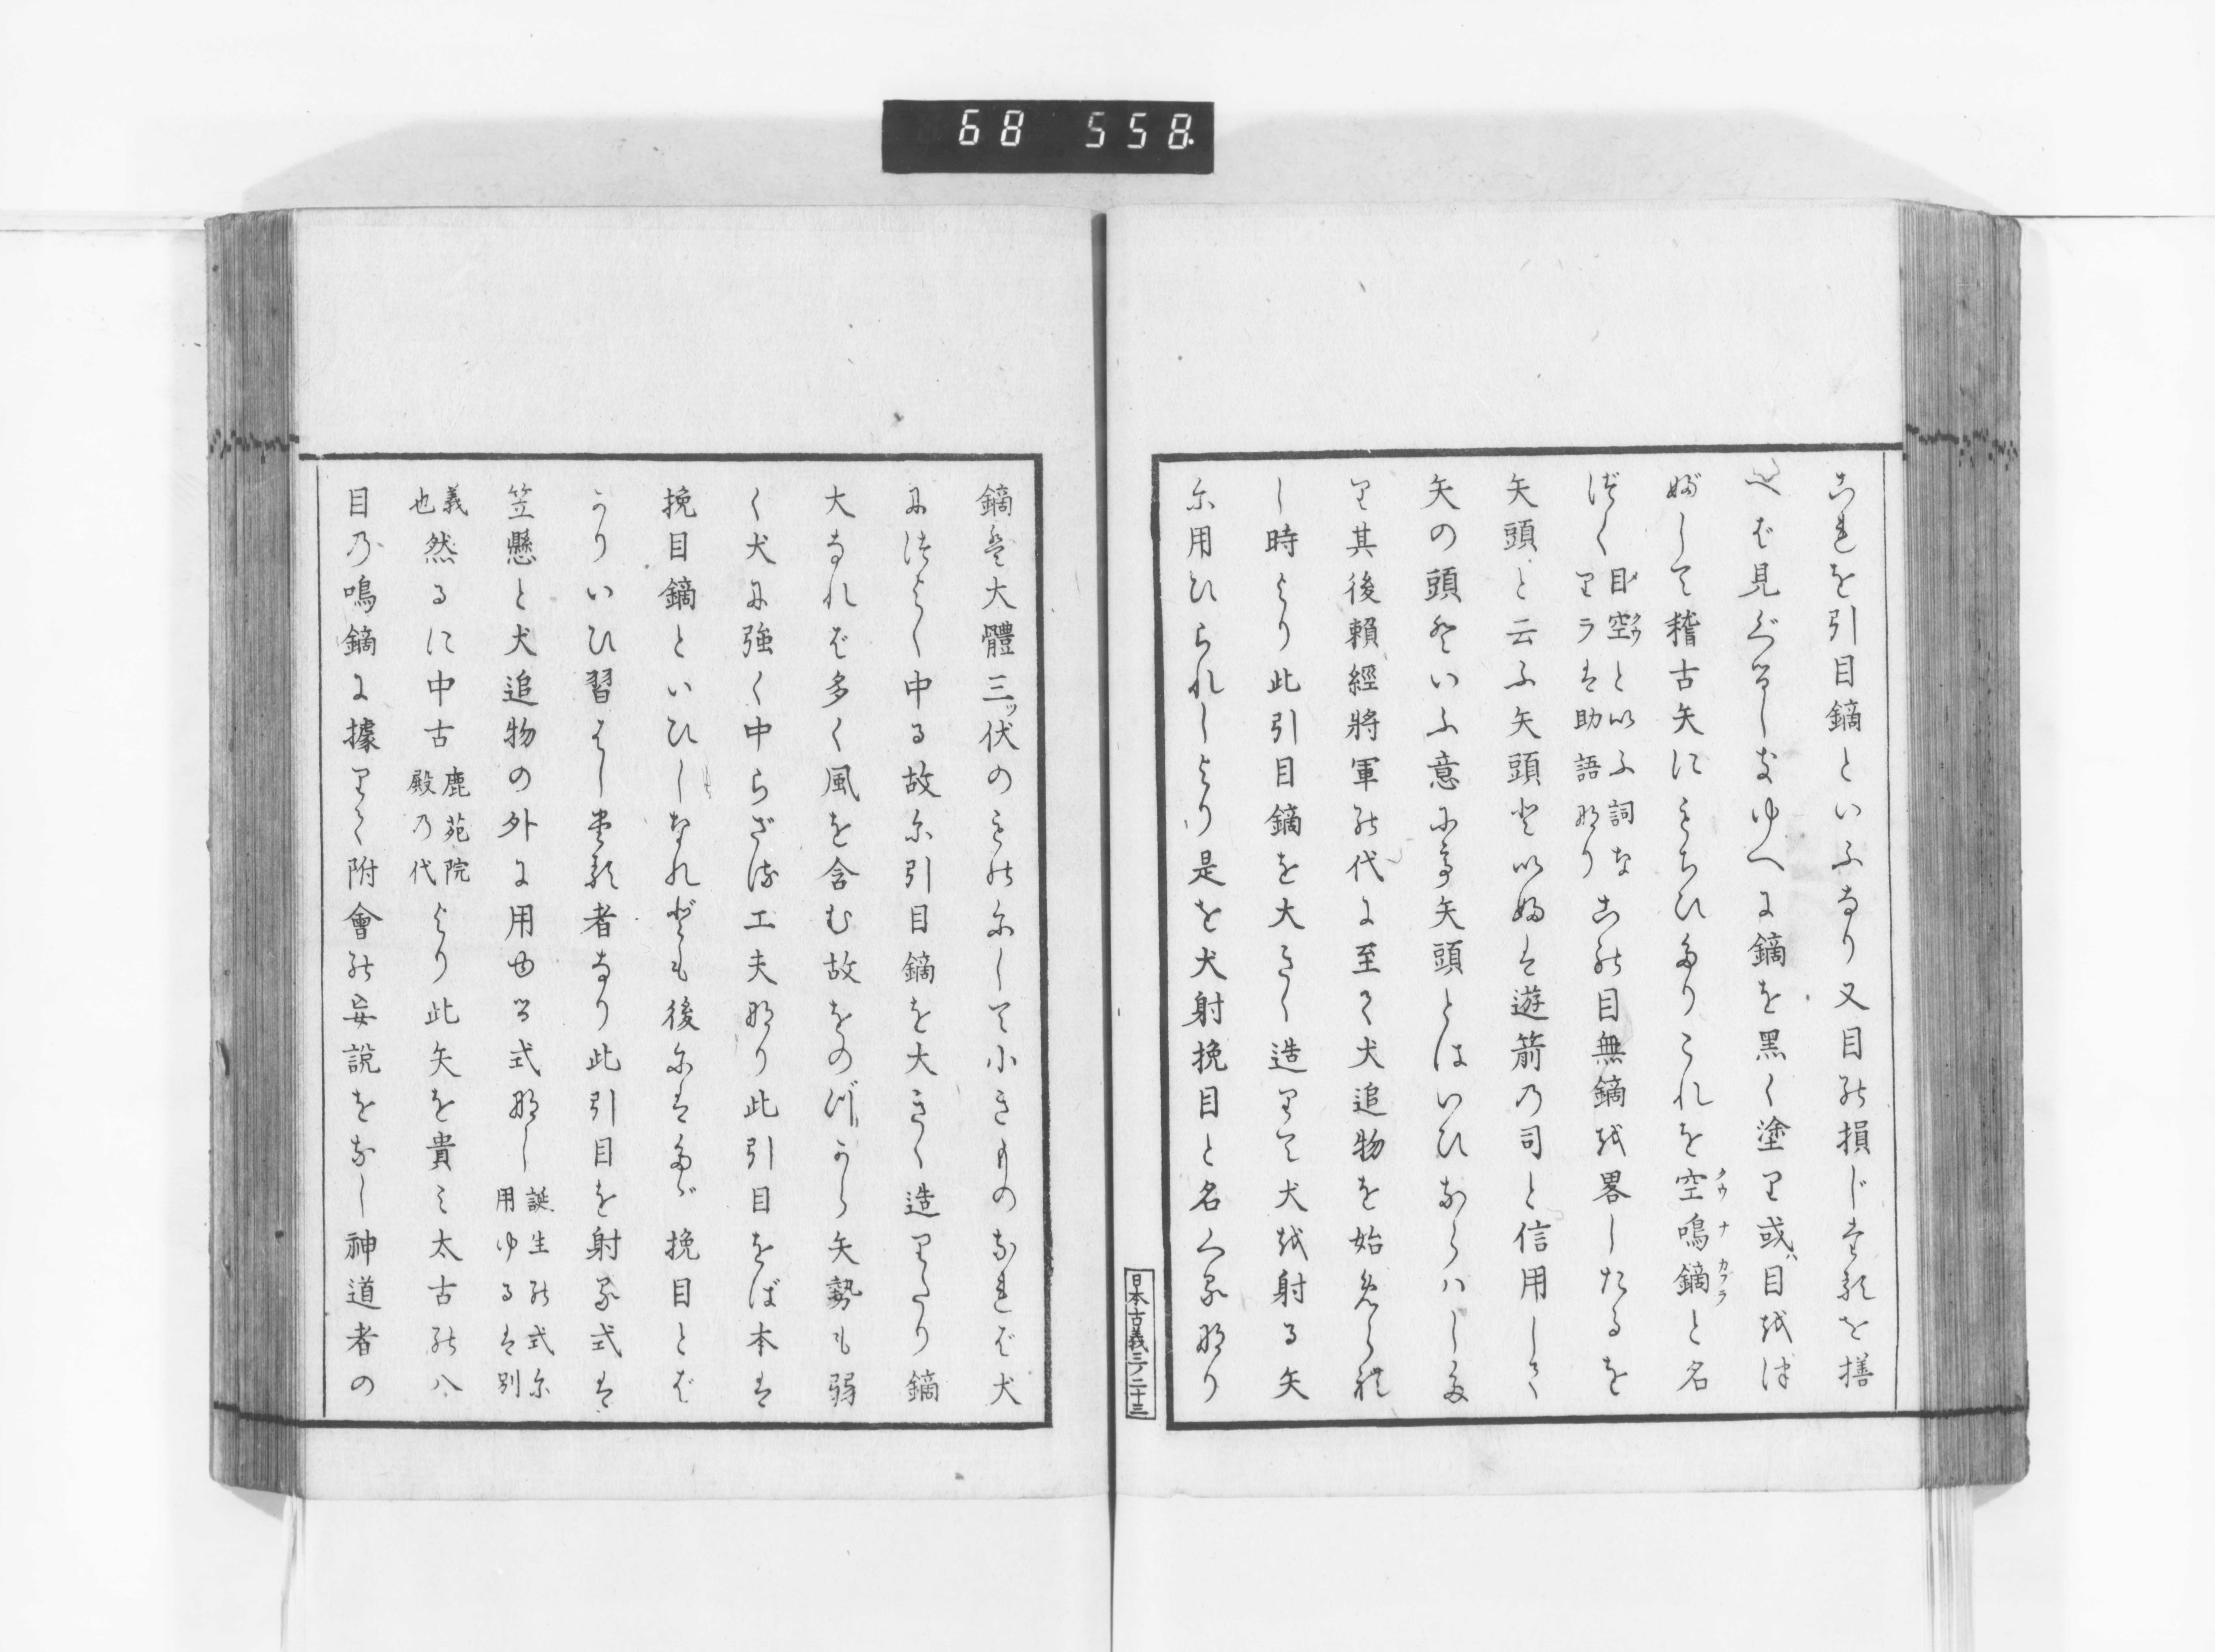 68 558.
これを引目鏑といふなり又目の損じたるを搭
へば見ぐるしきゆへに鏑を黒く塗り或ハ目をつ
ぶして稽古矢にもちひたりこれを空鳴鏑と名
づく目空と以ふ詞な
りラは助語なりこの目無鏑を畧したるを
矢頭と云ふ矢頭といふは遊箭の司と信用して
矢の頭といふ意にて矢頭とはいひならハした
り其後賴經將軍の代に至て犬追物を始められ
し時より此引目鏑を大きく造りて犬を射る矢
に用ひられしより是を犬射挽目と名くるなり
日本古義三ノ二十三
鏑は大體三ッ伏のものにして小きものなれば犬
につよく中る故に引目鏑を大きく造りたり鏑
大なれば多く風を含む故をのづから矢勢も弱
く犬に強く中らざる工夫なり此引目をば本は
挽目鏑といひしなれども後にはたゞ挽目とば
かりいひ習はしたる者なり此引目を射る式は
笠懸と犬追物の外に用ゆる式なし誕生の式に
用ゆるは別
義
也然るに中古鹿苑院
殿乃代より此矢を貴み太古の八
目乃鳴鏑に據りて附會の妄説をなし神道者の